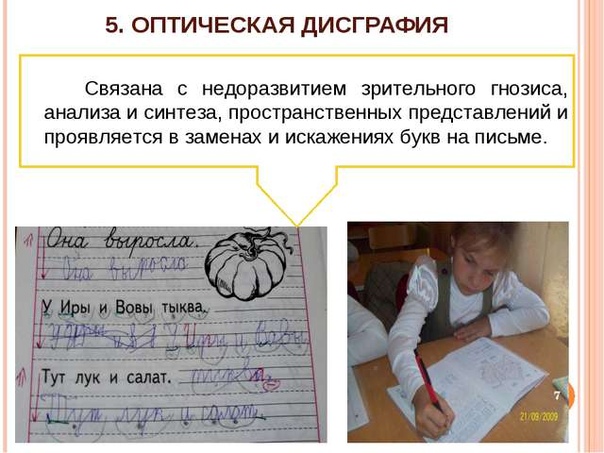 5. ОПТИЧЕСКАЯ ДИСГРАФИЯ
Связана с недоразвитием зрительного гнозиса,
анализа и синтеза, пространственных представлений и
проявляется в заменах и искажениях букв на письме.
Она выросла.
Она выросла
У Иры и Вовы тыква.
Тут лук и салат.
Тут лук и салат.
7
21/09/2009